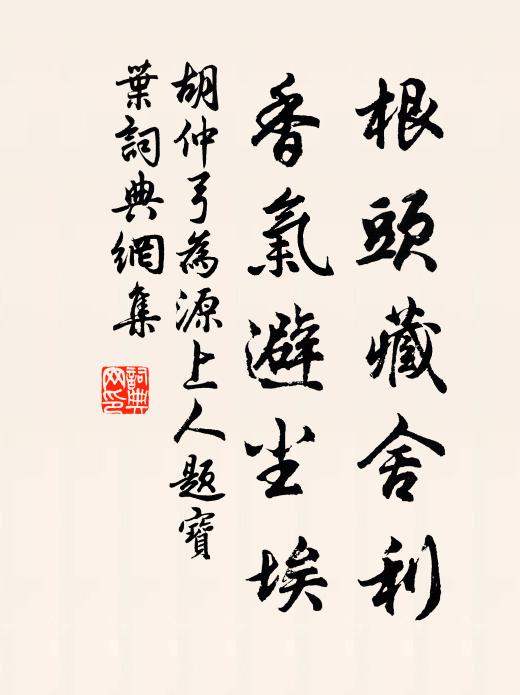 根頭藏舍利
香氣避尘埃
胡仲弓為源上人题寶
葉詞典網集
詞典网印